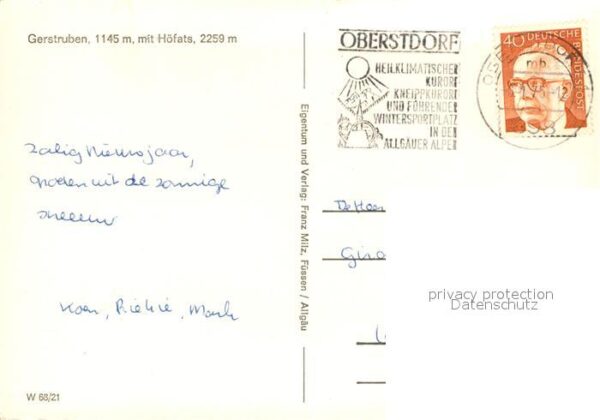 Gerstruben, 1145 m, mit Höfats, 2259 m
Zalig Nieuwjaar,
groeten uit de zonnige
sneeuw
Koen, Riekie, Mark
W 68/21
Eigentum und Verlag: Franz Milz, Füssen / Allgäu
OBERSTDORF
HEILKLIMATISCHER
KURORT
KNEIPPKURORT
UND FÜHRENDER
WINTERSPORTPLATZ
IN DEN
ALLGÄUER ALPEN
40 DEUTSCHE
BUNDESPOST
mb
privacy protection
Datenschutz